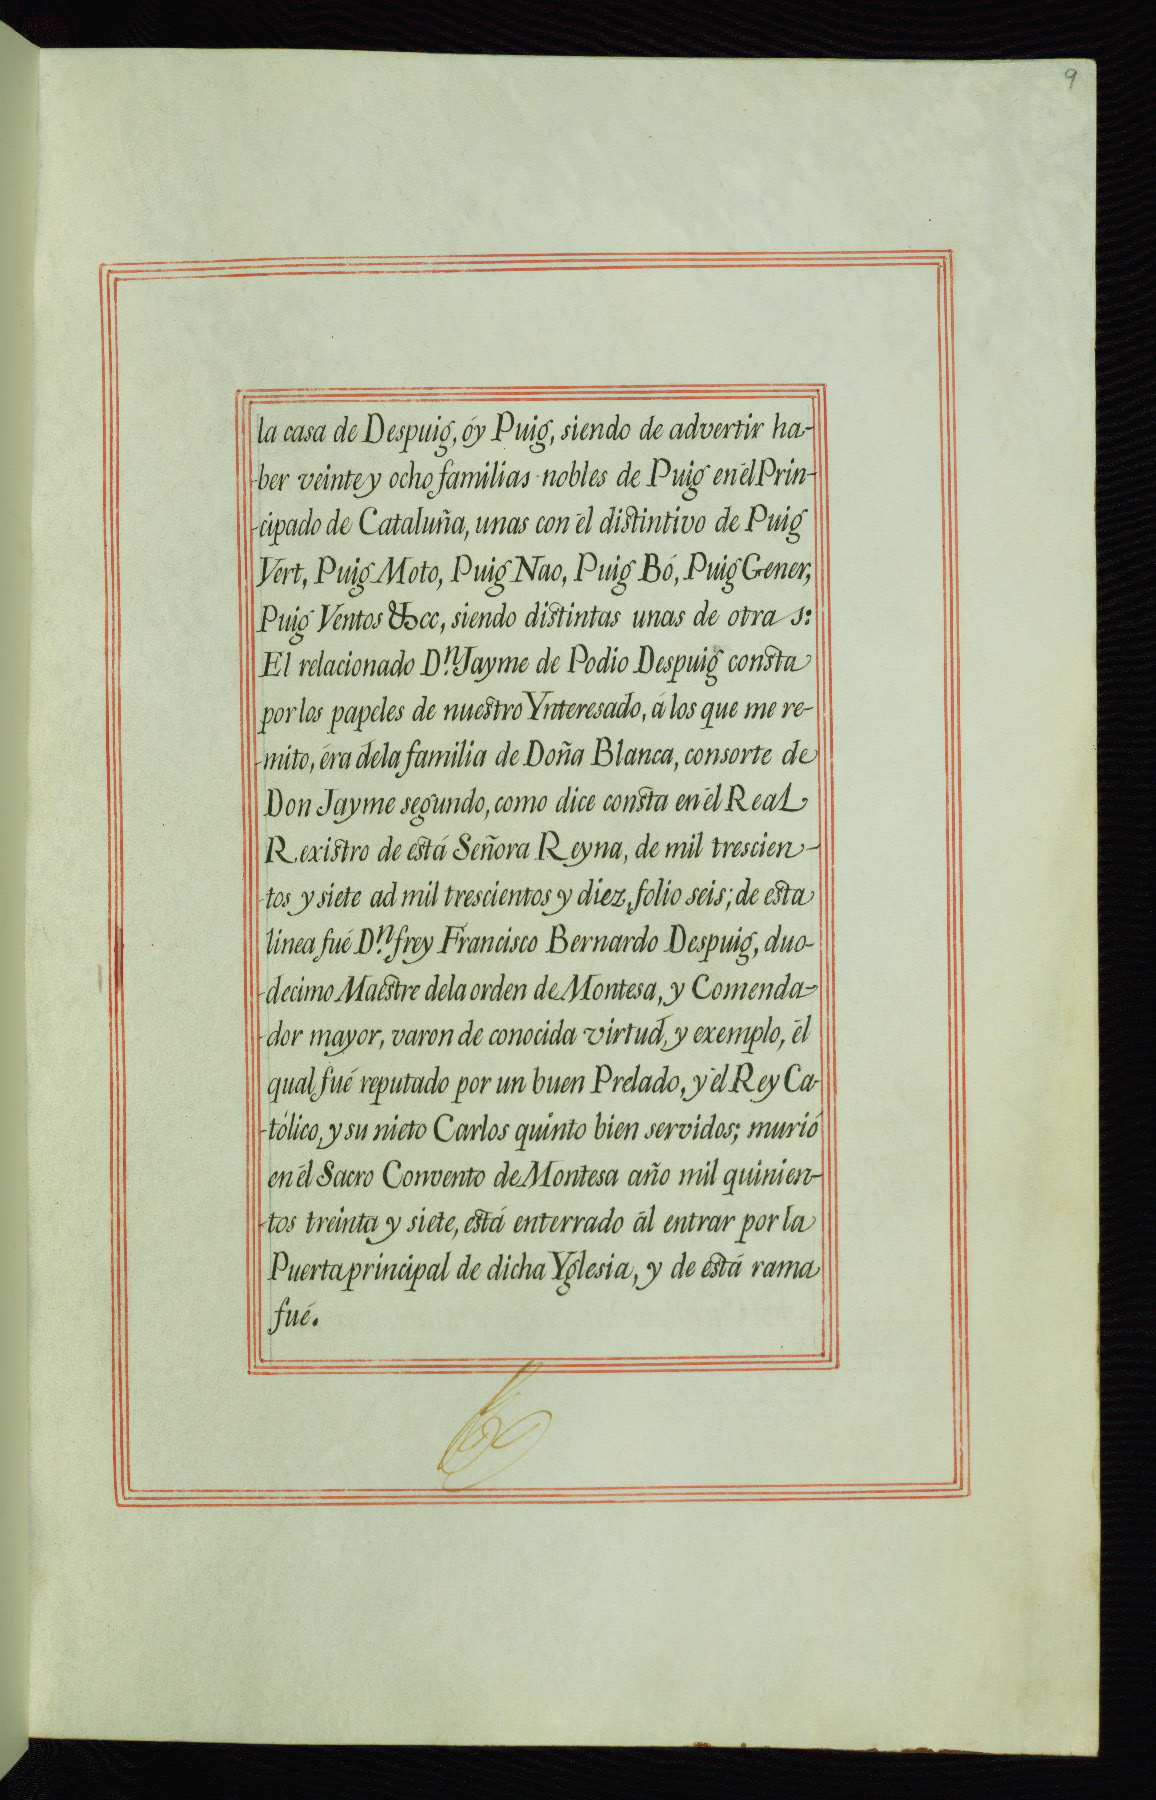 9
la casa de Despuig, óy Puig, siendo de advertir ha-
-ber veinte y ocho familias nobles de Puig en él Prin-
-cipado de Cataluña, unas con él distintivo de Puig
Vert, Puig Moto, Puig Nao, Puig Bó, Puig Gener,
Puig Ventos &cc, siendo distintas unas de otras:
El relacionado D.n Jayme de Podio Despuig consta
por los papeles de nuestro Ynteresado, á los que me re-
-mito, éra dela familia de Doña Blanca, consorte de
Don Jayme segundo, como dice consta en él Real
Rexistro de está Señora Reyna, de mil trescien-
-tos y siete ad mil trescientos y diez, folio seis; de esta
linea fué D.n frey Francisco Bernardo Despuig, duo-
-decimo Maestre dela orden de Montesa, y Comenda-
-dor mayor, varon de conocida virtud, y exemplo, él
qual fué reputado por un buen Prelado, y él Rey Ca-
-tólico, y su nieto Carlos quinto bien servidos; murió
en él Sacro Convento de Montesa año mil quinien-
-tos treinta y siete, está enterrado ál entrar por la
Puerta principal de dicha Yglesia, y de está rama
fué.